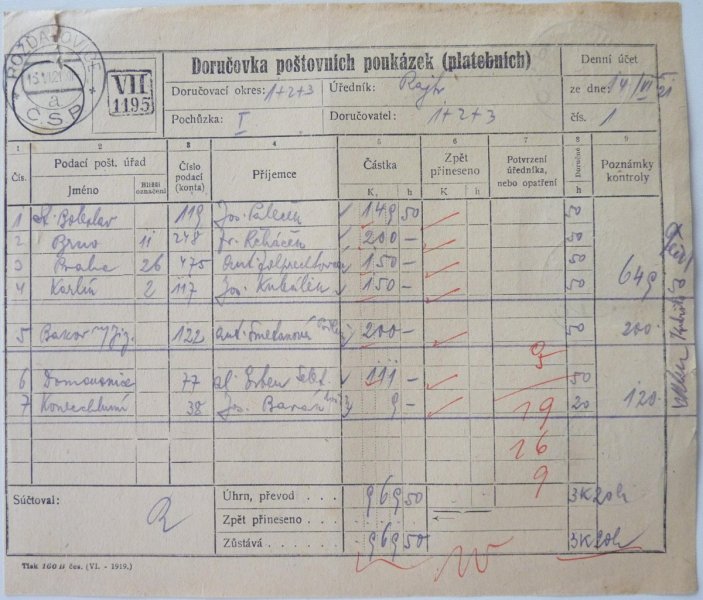 ROŽĎALOVICE
a
ČSP
VII
1195
Doručovka poštovních poukázek (platebních)
Doručovací okres: 1+2+3 Úředník:
Pochůzka: I Doručovatel: 1+2+3
Denní účet
ze dne: 14/VI 21
čís. 1
1 2 3 4 5 6 7 8 9
Čís. Podací pošt. úřad Číslo podací (konta) Příjemce Částka Zpět přineseno Potvrzení úředníka, nebo opatření Doručné Poznámky kontroly
Jméno Bližší označení K h K h h
1 St. Boleslav 119 Jos. 149 50 50
2 Brno 11 248 Fr. Řeháček 200 – 50
3 Praha 26 475 Ant. 150 – 50
4 Karlín 2 117 Jos. Kubálek 150 – 50 649
5 Bakov n/Jiz. 122 Ant. Smetanová 200 – 50 200
5
6 Domousnice 77 Al. Erben 111 – 50
7 Konecchlumí 38 Jos. Barák 9 – 20 120
19
26
9
Súčtoval:
Úhrn, převod . . . . 969 50 3K20h
Zpět přineseno . . . .
Zůstává . . . . 969 50 3K20h
Tisk 160 II čes. (VI. - 1919.)